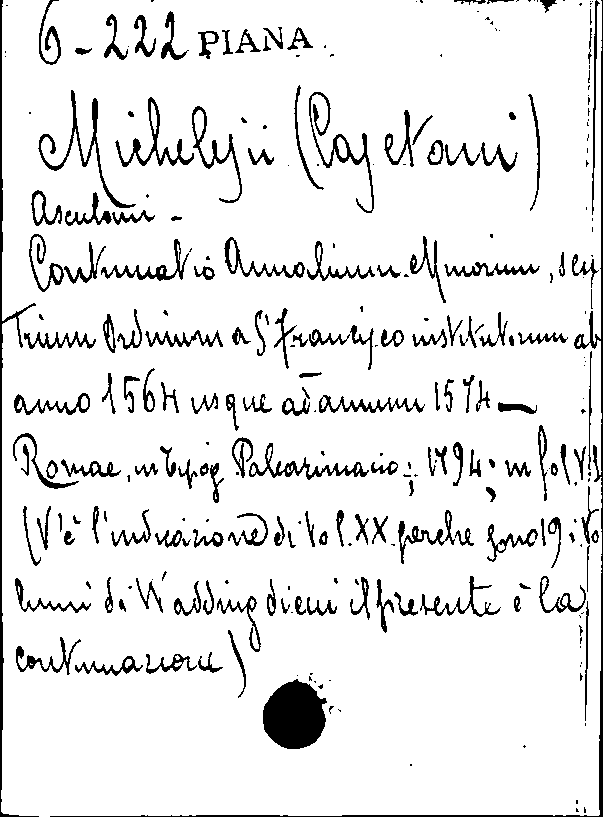 6-222 PIANA
Michelesii (Cajetani)
Asculani -
Continuatio Annalium Minorum, seu
Trium Ordinum a S. Francisco institutorum ab
anno 1564 usque ad annum 1574 —
Romae, in typog Paleariniacio; 1794; in fol. V.
(V'è l'indicazione di Vol. XX. perche sono 19 i Vo
lumi di Wadding di cui il presente è la
continuazione)